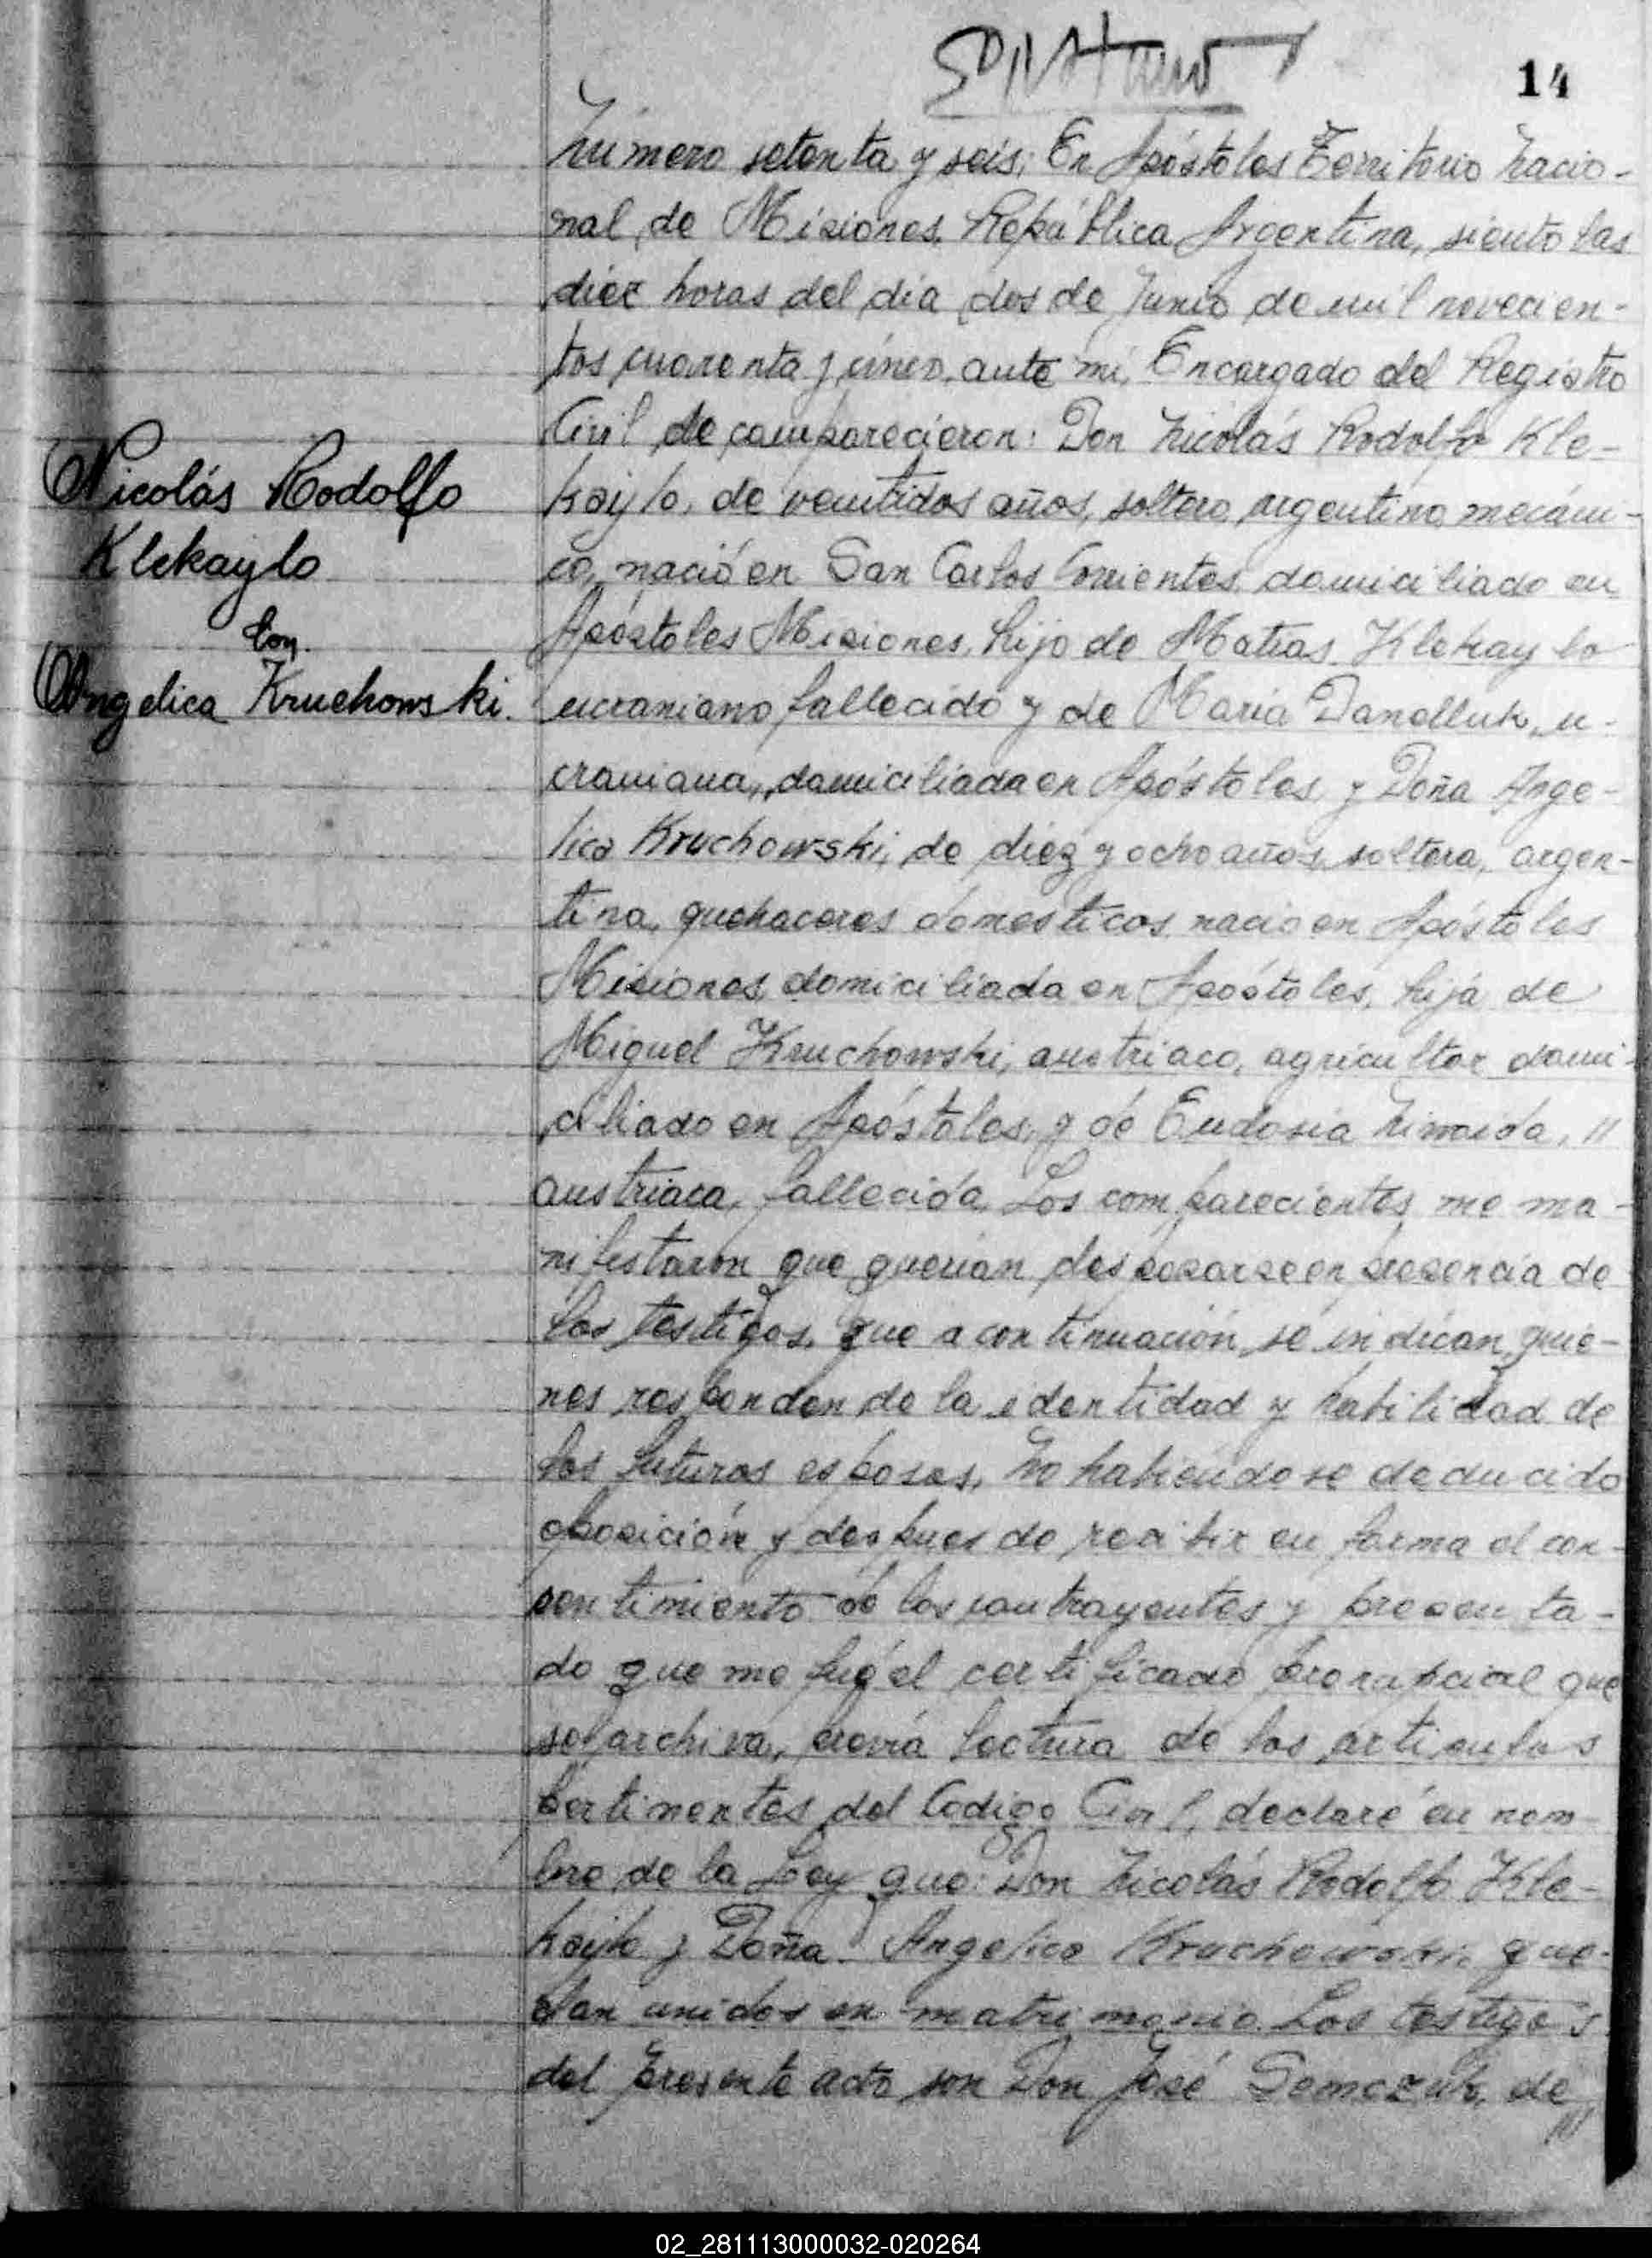 14
Número setenta y seis: En Apóstoles Territorio Nacio-
nal de Misiones, República Argentina, siento las
diez horas del dia dos de Junio de mil novecien-
tos cuarenta y cinco, ante mi, Encargado del Registro
Civil de comparecieron: Don Nicolás Rodolfo Kle-
kaylo, de veintidos años, soltero, argentino, mecáni-
co, nació en San Carlos Corrientes, domiciliado en
Apóstoles Misiones, hijo de Matias Klekaylo
ucraniano fallecido y de Maria Danelluk, u-
craniana, domiciliada en Apóstoles y Doña Ange-
lica Kruchowski, de diez y ocho años, soltera, argen-
tina, quehaceres domesticos, nacio en Apóstoles
Misiones domiciliada en Apóstoles, hija de
Miguel Kruchowski, austriaco, agricultor domi-
ciliado en Apóstoles, y de Eudosia //
austriaca, fallecida. Los comparecientes me ma-
nifestaron que querian desposarse en presencia de
los testigos, que a continuación se indican, quie-
nes responden de la identidad y habilidad de
los futuros esposos. No habiendose deducido
oposición y despues de recibir en forma el con-
sentimiento de los contrayentes y presenta-
do que me fué el certificado prenupcial que
se archiva, previa lectura de los articulos
pertinentes del Codigo Civil, declaré en nom-
bre de la Ley que: Don Nicolás Rodolfo Kle-
kaylo y Doña Angelica Kruchowski, que-
dan unidos en matrimonio. Los testigos
del presente acto son Don José Semczuk, de
///
Nicolás Rodolfo
Klekaylo
Con
Angelica Kruchowski.
02_281113000032-020264